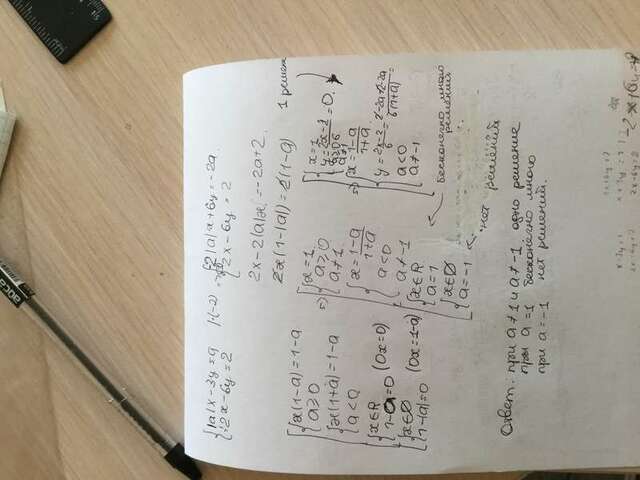 {|a|x-3y=a |·(-2) {-2|a|x+6y=-2a
{2x-6y=2 {2x-6y=2
2x-2|a|x=-2a+2.
2x(1-|a|)=2(1-a) 1 решение
{x(1-a)=1-a
a≥0
{x(1+a)=1-a
a<0
{x∈R
1-a=0 (0x=0)
{x∈∅
1-|a|=0 (0x=1-a)
{x=1
a≥0
a≠1
{x=1-a/1+a
a<0
a≠-1
{x∈R
a=1
{x∈∅
a=-1
{x=1
y=2x-2/6=0.
a≥0
a≠1
{x=1-a/1+a
y=2x-2/6=2-2a-2-2a/6(1+a)=
a<0
a≠-1
бесконечно много
решений
нет решений
Ответ: при a≠1 и a≠-1 одно решение
при a=1 бесконечно много
при a=-1 нет решений.